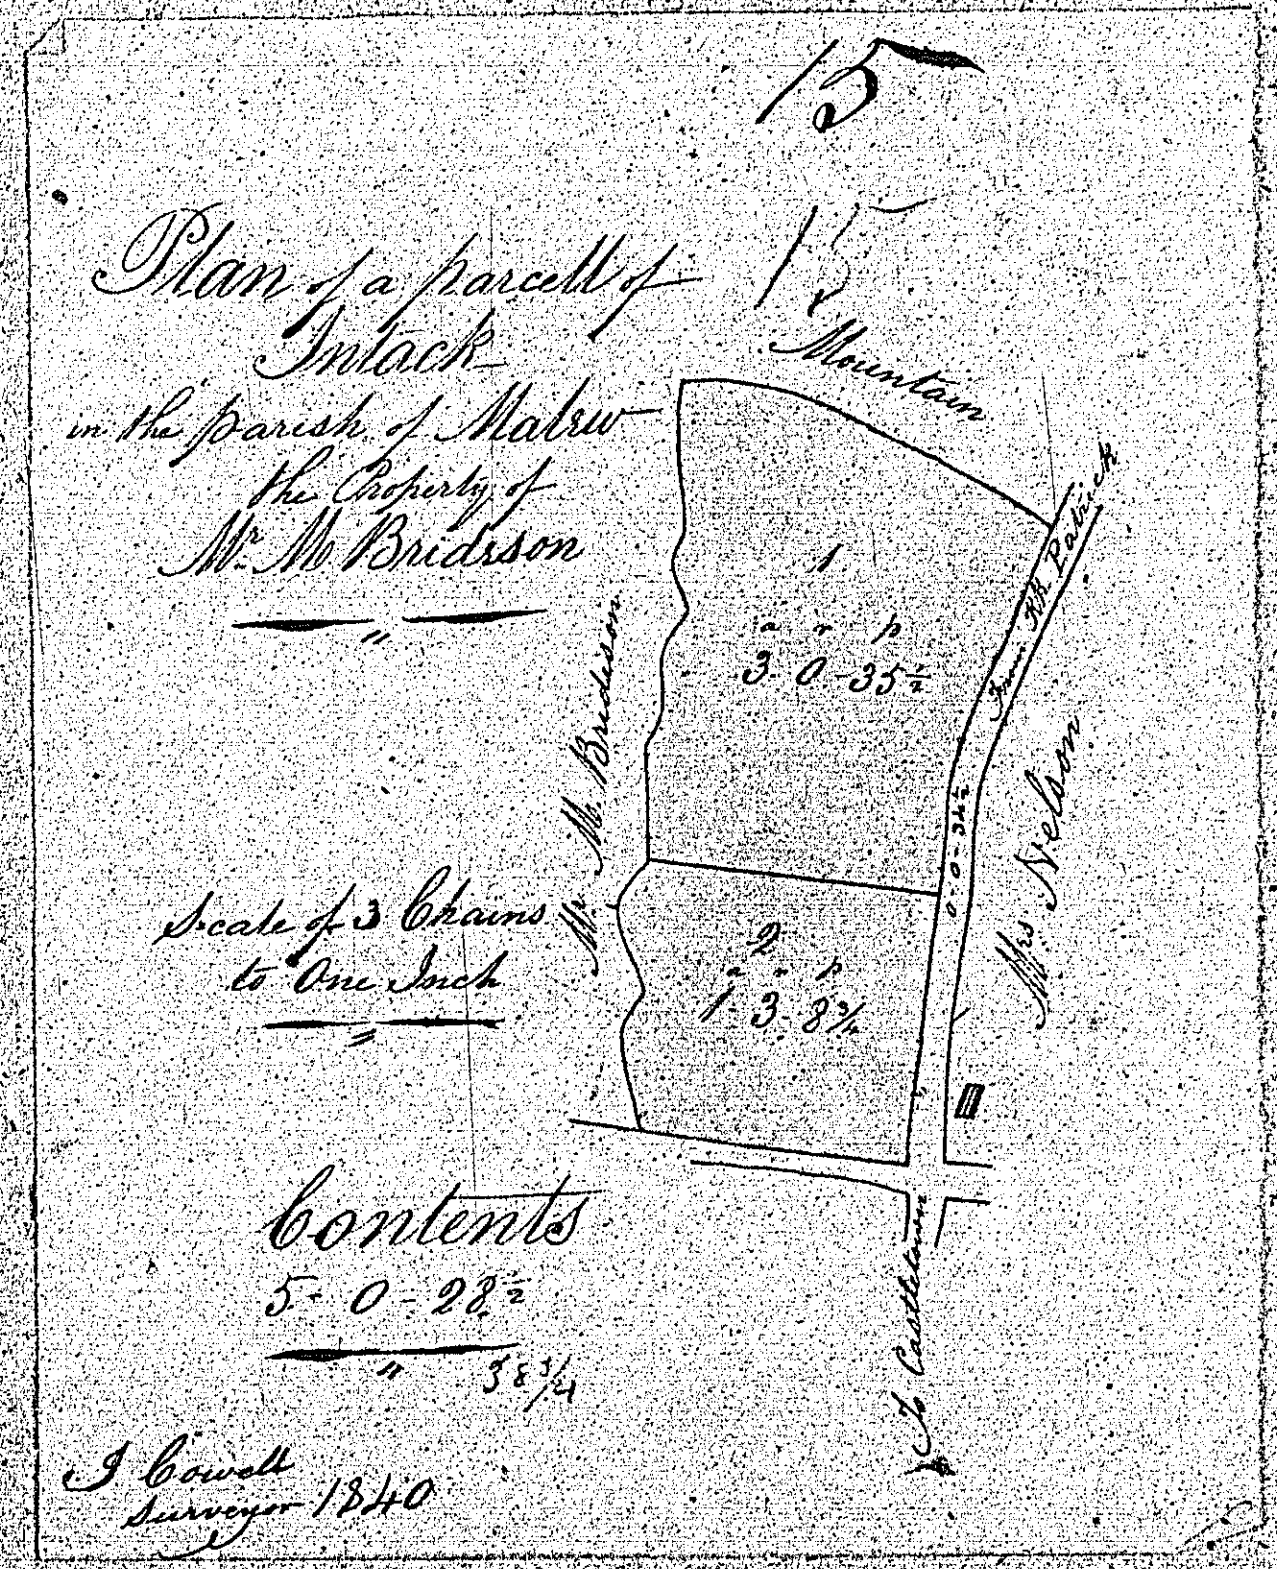 15
15
Plan of a parcell of
Intack
in the parish of Malew
the Property of
Mr. M. Bridson
Mountain
From Kk Patrick
1
a r p
3. 0 - 35 1/2
Mr. M. Bridson
0 - 0 - 34 1/2
Mrs. Nelson
Scale of 3 Chains
to One Inch
2
a r p
1 - 3 - 8 3/4
Contents
5 - 0 - 28 1/2
38 3/4
To Castletown
J Cowell
Surveyor 1840